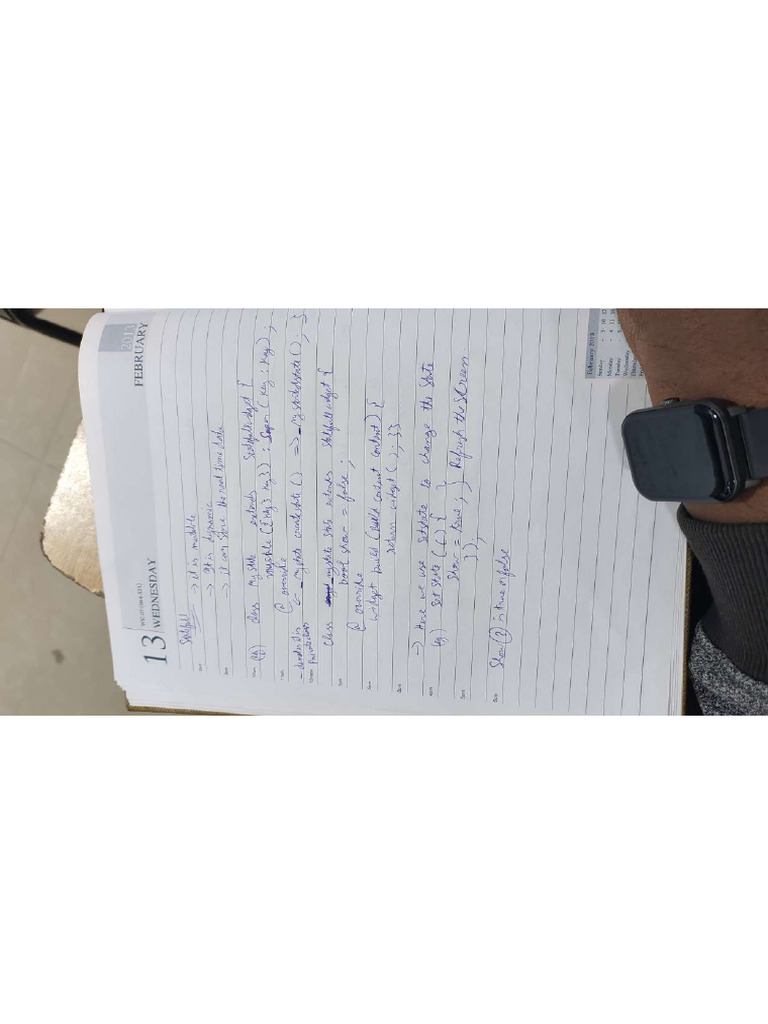 2013
FEBRUARY
13
WK 07 (044-321)
WEDNESDAY
Statefull
→ it is mutable
→ It is dynamic
→ it can store the real time data
eg) class mystate extends Statefullwidget {
mystate ({key? key}) : super (key : key) ;
@ override
_mystate createstate () => _mystate
- denotes it is
private class
class mystate State extends Statefullwidget {
bool show = false ;
@ override
widget build (Build context context) {
return widget () ; }}
→ Here we use setstate to change the state
eg) Set state (() {
show = true ; } Refresh the screen.
});
show (?) is true or false
February 2013
Sunday - 3 10
Monday - 4 11
Tuesday - 5
Wednesday